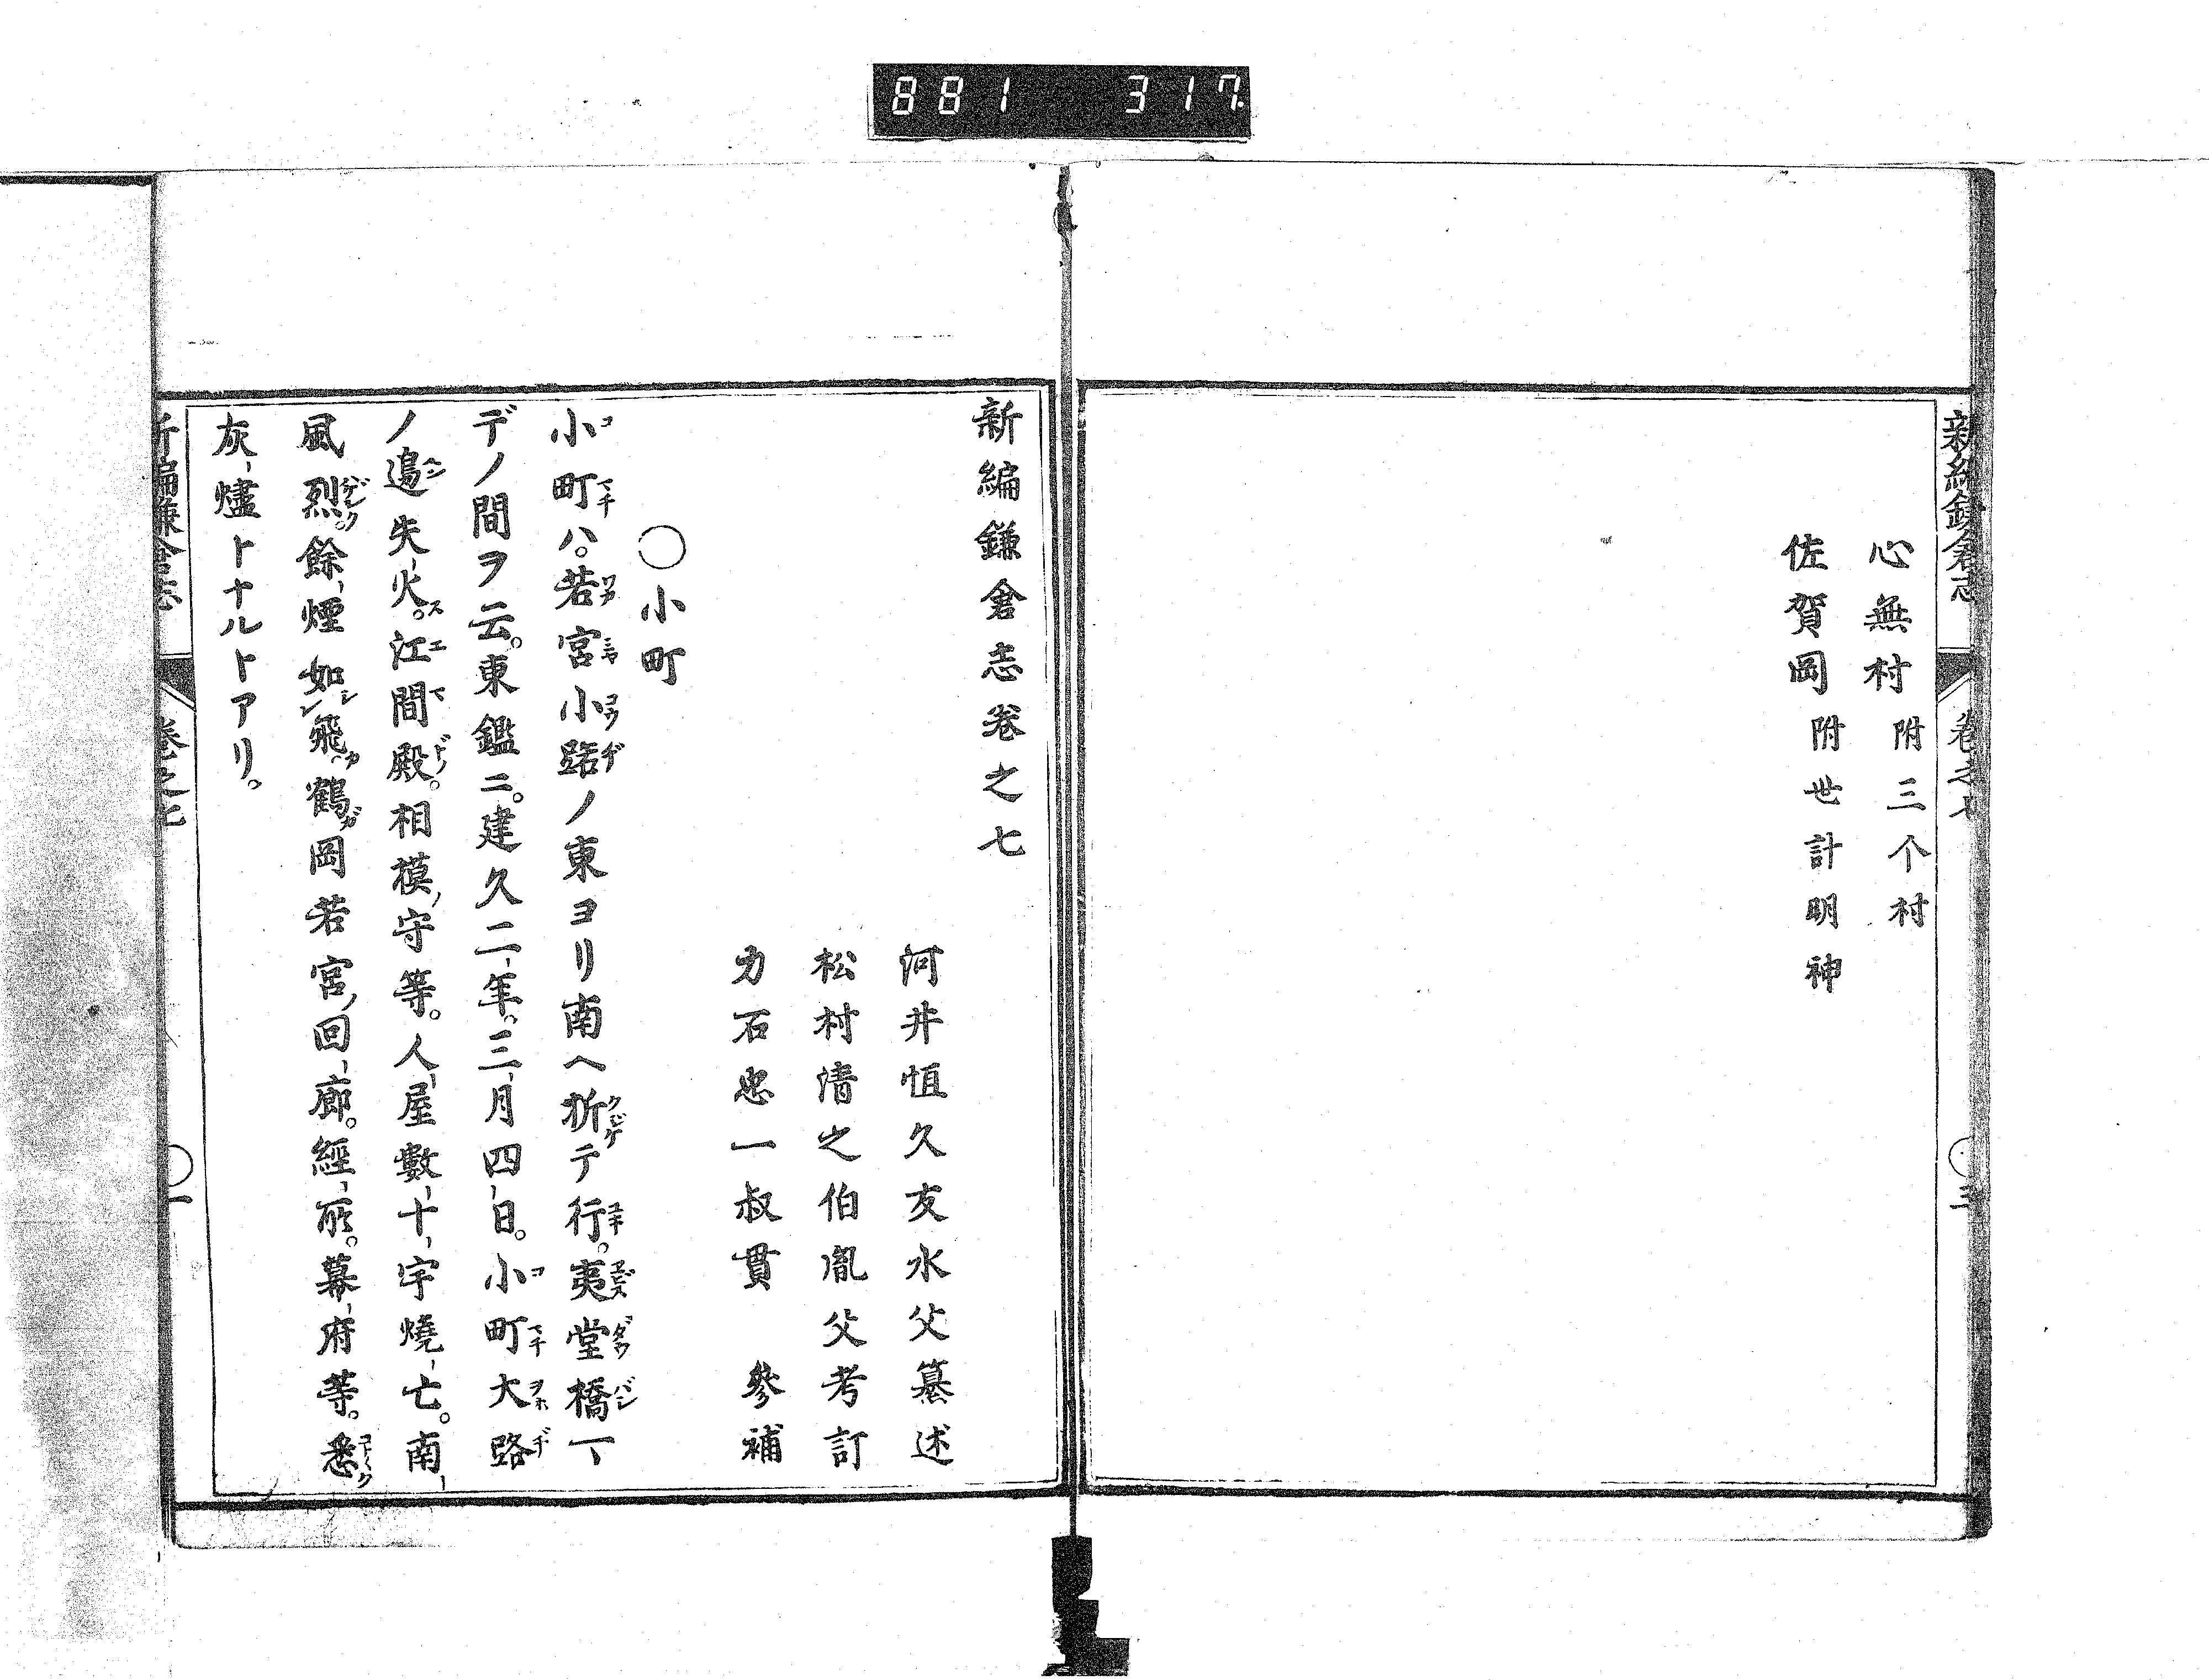 881 317
新編鎌倉志 卷之七 三
心無村附三个村
佐賀岡附世計明神
新編鎌倉志卷之七
河井恒久友水父纂述
松村清之伯胤父考訂
力石忠一叔貫 參補
○小町
小町ハ。若宮小路ノ東ヨリ南ヘ折テ行。夷堂橋マ
デノ間ヲ云。東鑑ニ。建久二年。三月四日。小町大路
ノ邉失火。江間殿。相模守等。人屋數十宇燒亡。南
風烈。餘煙如飛。鶴岡若宮ノ回廊。經所。幕府等。悉
灰燼トナルトアリ。
新編鎌倉志 卷之七 一